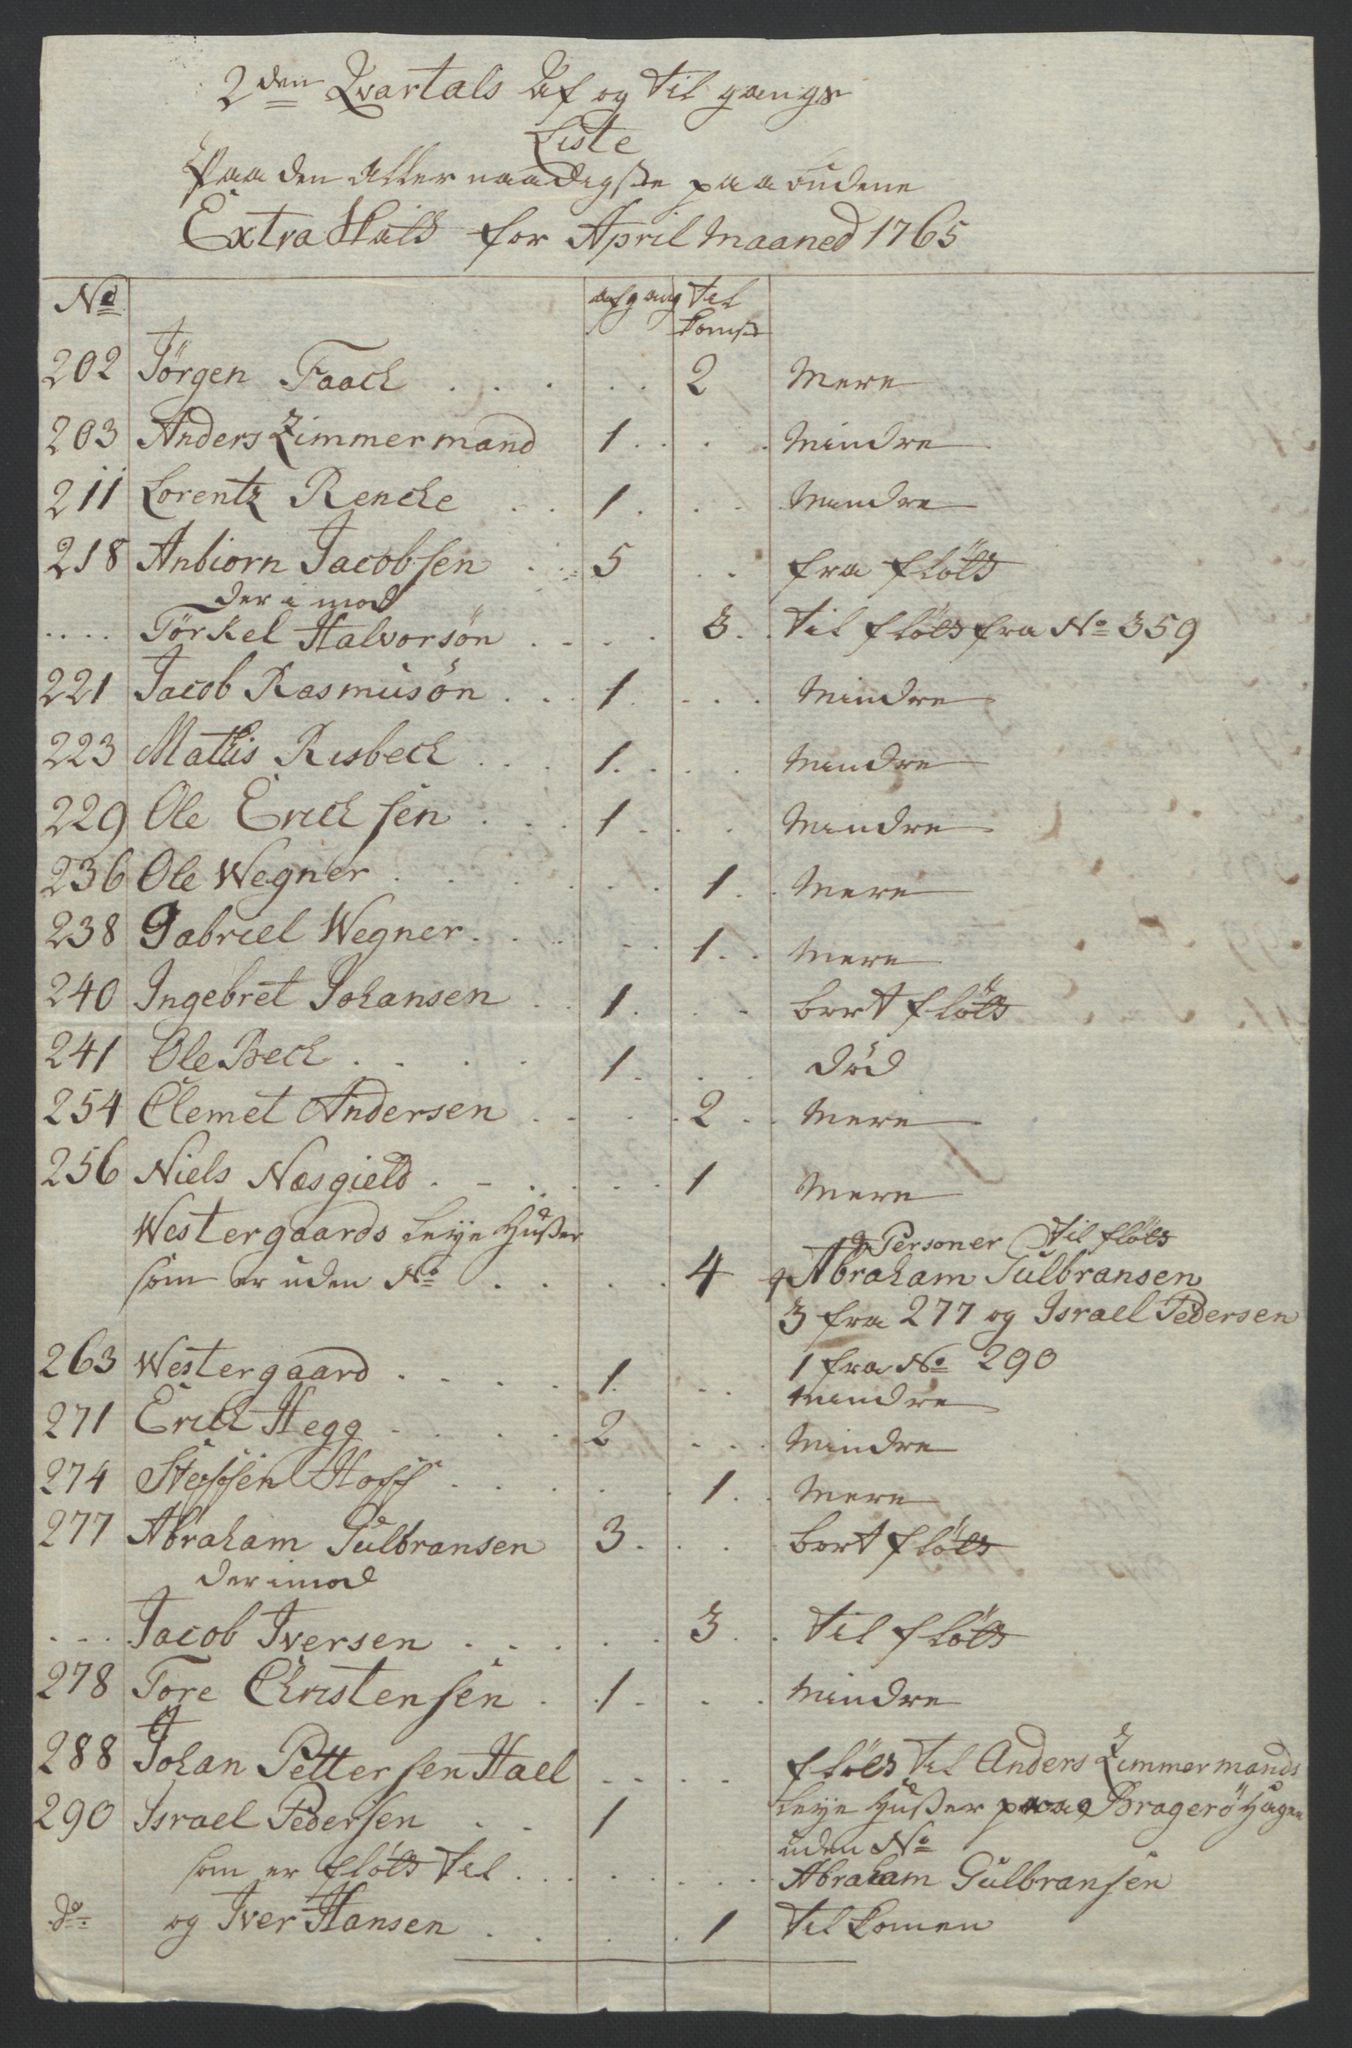 2den Qvartals Af og til gangs
Liste
Paa den Aller naadigste paabudene
Extra Skatt for April Maaned 1765
No afgang Til komst
202 Jørgen Faach . . . . . 2 Mere
203 Anders Zimmermand 1 . . . Mindre
211 Lorentz Rencke . . 1 . . . Mindre
218 Anbiorn Jacobsen . . 5 . . fra fløtt
der i mod
. . . . Törkel Halvorsøn . . . . 3 . . til fløtt fra No 359
221 Jacob Rasmusøn . . . 1 . . . . Mindre
223 Mathis Risbech . . . 1 . . . . Mindre
229 Ole Erichsen . . . 1 . . . Mindre
236 Ole Wegner . . . . . . 1 . . Mere
238 Gabriel Wegner . . . . . 1 . . Mere
240 Ingebret Johansen . . 1 . . . bort fløtt
241 Ole Bech . . . . 1 . . . død
254 Clemet Andersen . . . . 2 . . Mere
256 Niels Næsgield . . . . . . 1 Mere
Westergaards Leye Husser 4 Personer Til fløtt
som er uden No . . . . 4 Abraham Gulbransen
3 fra 277 og Israel Pedersen
263 Westergaard . . . . 1 . . . 1 fra No 290
Mindre
271 Erich Hegg . . . . 2 . . . Mindre
274 Steffen Hoff . . . . . . 1 . . Mere
277 Abraham Gulbransen 3 . . . bort fløtt
der imod
. . . Jacob Iversen . . . . . 3 . . til fløtt
278 Tore Christensen . . 1 . . . . Mindre
288 Johan Pettersen Hael . . . . fløtt til Anders Zimmermands
290 Israel Pedersen . . 1 Leye Husser paa Bragerö Hagen
uden No
som er fløtt til . . . . . . . . Abraham Gulbransen
do og Iver Hansen . . . . 1 til komen